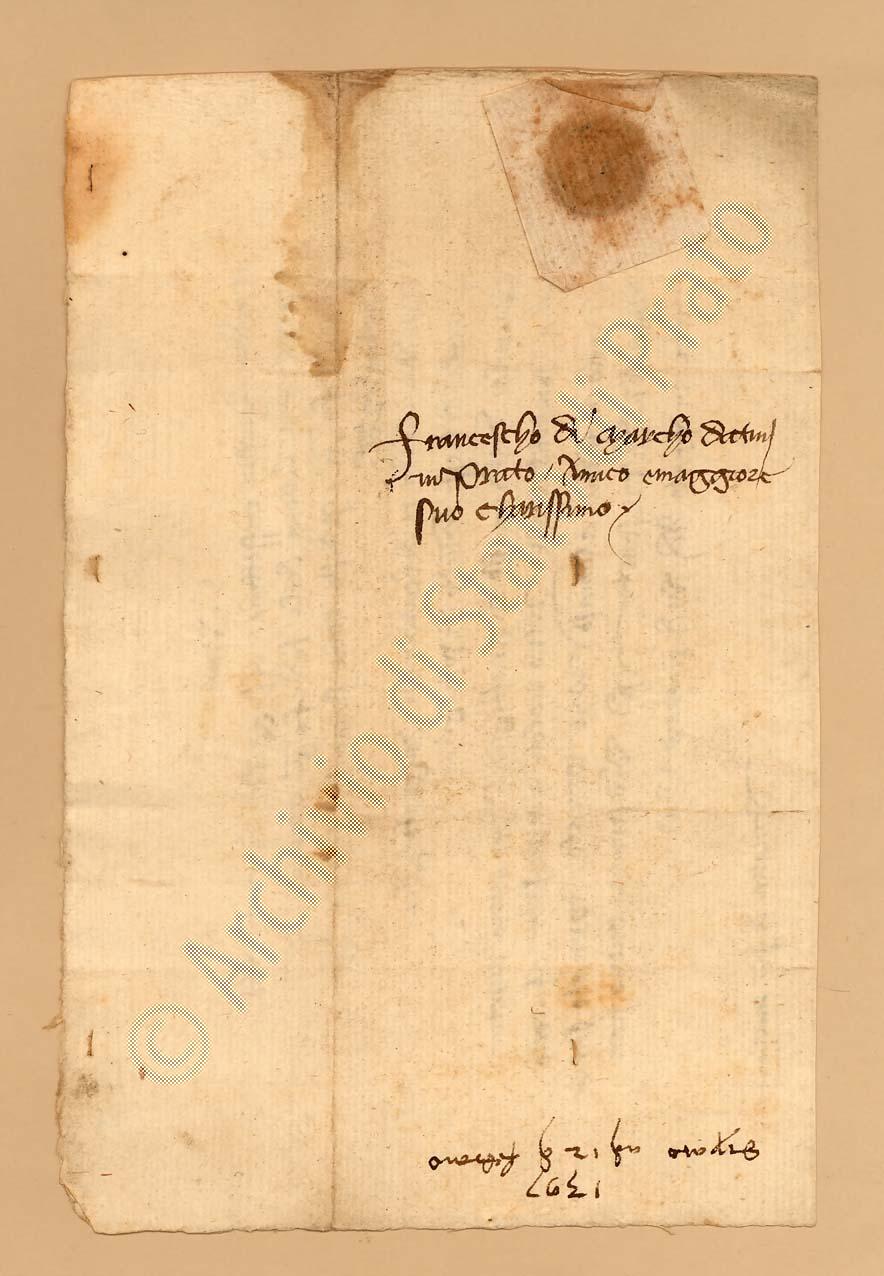 Francescho di Marcho datinj
in Prato Amico e maggiore
suo charissimo
febraio
1397
© Archivio di Stato di Prato